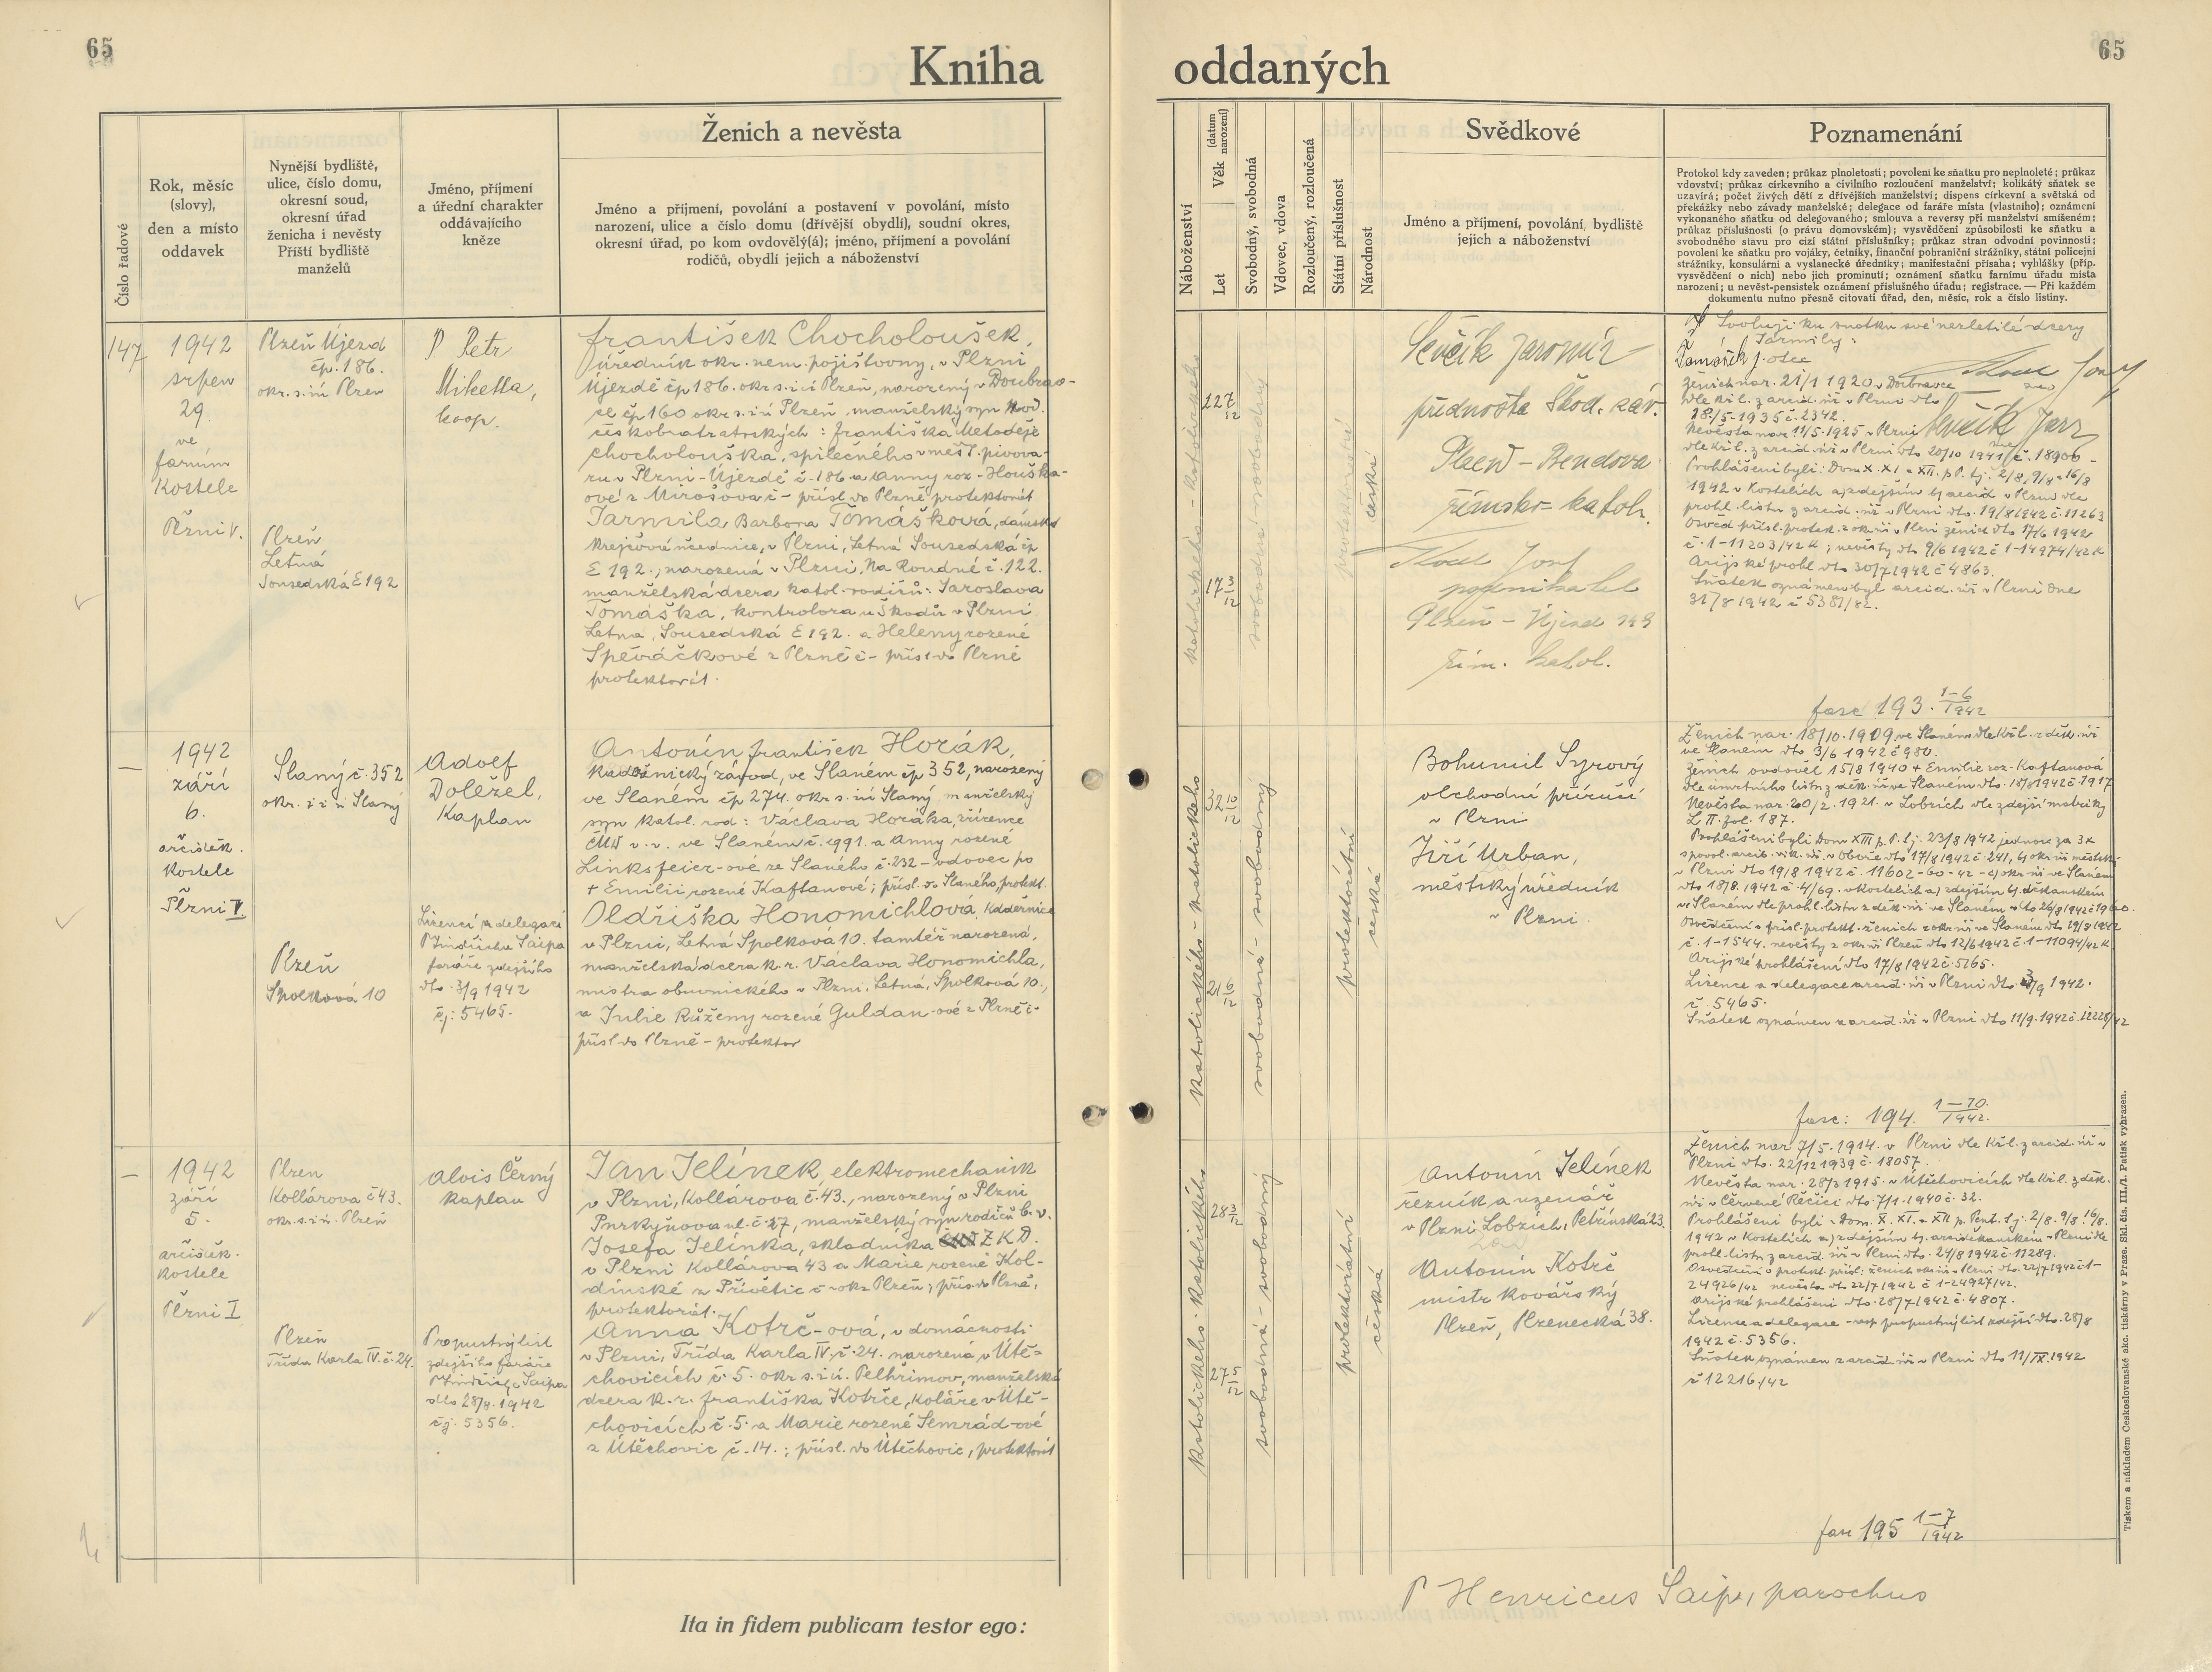 65
Kniha
Číslo řadové
Rok, měsíc
(slovy),
den a místo
oddavek
Nynější bydliště,
ulice, číslo domu,
okresní soud,
okresní úřad
ženicha i nevěsty
Příští bydliště
manželů
Jméno, příjmení
a úřední charakter
oddávajícího
kněze
Ženich a nevěsta
Jméno a příjmení, povolání a postavení v povolání, místo
narození, ulice a číslo domu (dřívější obydlí), soudní okres,
okresní úřad, po kom ovdovělý(á); jméno, příjmení a povolání
rodičů, obydlí jejich a náboženství
147
1942
srpen
29.
ve
farním
Kostele
Plzni V.
Plzeň Újezd
čp. 186.
okr. s. i ú Plzeň
Plzeň
Letná
Sousedská E192
P Petr
Miketta,
koop.
František Chocholoušek,
úředník okr. nem. pojišťovny, v Plzni
Újezdě čp 186. okr s. i ú Plzeň, narozený v Doubrav-
ce čp 160 okr s. i ú Plzeň manželský syn
českobratrských: Františka Metoděje
Chocholouška, spilečného v měšť. pivova-
ru v Plzni-Újezdě č. 186 a Anny roz. Houška-
ové z Mirošova č- přísl. do Plzně protektorát
Jarmila Barbora Tomášková, dámská
krejčová učednice, v Plzni, Letná Sousedská čp
E 192., narozená v Plzni, Na Roudné č. 122.
manželská dcera katol. rodičů: Jaroslava
Tomáška, kontrolora u Škodů v Plzni
Letná, Sousedská E 192. a Heleny rozené
Spěváčkové z Plzně č- přísl. do Plzně
protektorát.
1942
září
6.
arciděk.
kostele
Plzni I.
Slaný č. 352
okr. s. i ú Slaný
Plzeň
Spolková 10
Adolf
Doležel,
Kaplan
Licencí a delegací
P Jindřicha Šaipa
faráře zdejšího
dto. 3/9 1942
čj: 5465.
Antonín František Horák,
kadeřnický závod, ve Slaném čp 352, narozený
ve Slaném čp 274. okr s. i ú Slaný, manželský
syn katol. rod: Václava Horáka, zřízence
ČMD v. v. ve Slaném č. 991. a Anny rozené
Linksfeier-ové ze Slaného č. 232 - vdovec po
+ Emilii rozené Kaftanové; přísl. do Slaného, protekt.
Oldřiška Honomichlová, kadeřnice
v Plzni, Letná Spolková 10. tamtéž narozená,
manželská dcera k. r. Václava Honomichla,
mistra obuvnického v Plzni, Letná, Spolková 10.,
a Julie Růženy rozené Guldan-ové z Plzně č-
přísl do Plzně - protektor
1942
září
5.
arciděk.
kostele
Plzni I
Plzeň
Kollárova č 43.
okr. s. i ú. Plzeň
Plzeň
Třída Karla IV. č. 24.
Alois Černý
kaplan
Propustný list
zdejšího faráře
P Jindřicha Šaipa
dto 28/8. 1942
čj. 5356.
Jan Jelínek, elektromechanik
v Plzni, Kollárova č. 43., narozený v Plzni
Purkyňova ul. č. 27, manželský syn rodičů b. v.
Josefa Jelínka, skladníka ŽKD.
v Plzni Kollárova 43 a Marie rozené Kol-
dinské z Přívětic č- okr Plzeň; přísl. do Plzně,
protektorát.
Anna Kotrč-ová, v domácnosti
v Plzni, Třída Karla IV. č. 24. narozená v Útě-
chovicích č. 5. okr s. i ú. Pelhřimov, manželská
dcera k. r. Františka Kotrče, koláře v Útě-
chovicích č. 5. a Marie rozené Semrád-ové
z Útěchovic č. 14.; přísl. do Útěchovic, protektorát
Ita in fidem publicam testor ego:
65
oddaných
Náboženství
Věk (datum narození)
Let
Svobodný, svobodná
Vdovec, vdova
Rozloučený, rozloučená
Státní příslušnost
Národnost
Svědkové
Jméno a příjmení, povolání, bydliště
jejich a náboženství
Poznamenání
Protokol kdy zaveden; průkaz plnoletosti; povolení ke sňatku pro neplnoleté; průkaz
vdovství; průkaz církevního a civilního rozloučení manželství; kolikátý sňatek se
uzavírá; počet živých dětí z dřívějších manželství; dispens církevní a světská od
překážky nebo závady manželské; delegace od faráře místa (vlastního); oznámení
vykonaného sňatku od delegovaného; smlouva a reversy při manželství smíšeném;
průkaz příslušnosti (o právu domovském); vysvědčení způsobilosti ke sňatku a
svobodného stavu pro cizí státní příslušníky; průkaz stran odvodní povinnosti;
povolení ke sňatku pro vojáky, četníky, finanční pohraniční strážníky, státní policejní
strážníky, konsulární a vyslanecké úředníky; manifestační přísaha; vyhlášky (příp.
vysvědčení o nich) nebo jich prominutí; oznámení sňatku farnímu úřadu místa
narození; u nevěst-pensistek oznámení příslušného úřadu; registrace. — Při každém
dokumentu nutno přesně citovati úřad, den, měsíc, rok a číslo listiny.
katolického - katolického
22 7/12
17 3/12
svobodná svobodný
protektorátní
česká
Ševčík Jaromír
přednosta Škod. záv.
Plzeň - Bendova
římsko-katol.
Josef
podnikatel
Plzeň - Újezd
řím. katol.
Svoluji ku sňatku své nezletilé dcery
Jarmily:
Tomášek J. otec
Ženich nar. 21/1 1920 v Doubravce
dle křl. z arcid. úř v Plzni dto
18/5-1935 č. 2342.
Nevěsta nar. 11/5. 1925 v Plzni
dle křl. z arcid. úř. v Plzni dto 20/10 1941 č. 18906-
Prohlášeni byli: Dom X. XI a XII. p P. tj. 2/8, 9/8 a 16/8
1942 v Kostelích a) zdejším b) arcid. v Plzni dle
prohl. listu z arcid. úř v Plzni dto. 19/8 1942 č. 11263
Osvěd přísl. protek. z okr. úř v Plzni ženich dto 17/6 1942
č. 1-11203/42 K; nevěsty dto 9/6 1942 č 1-14974/42 K
Arijské prohl dto 30/7 1942 č 4863.
Sňatek oznámen byl arcid. úř. v Plzni dne
31/8 1942 č 5381/82.
fasc 193. 1-6/1942
katolického - katolického
32 10/12
21 6/12
svobodná - svobodný
protektorátní
česká
Bohumil Syrový
obchodní příručí
v Plzni
Jiří Urban,
městský úředník
v Plzni.
Ženich nar. 18/10. 1909. ve Slaném dle křl. z děk. úř
ve Slaném dto 3/6 1942 č 980.
Ženich ovdověl 15/8 1940 + Emilie roz. Kaftanová
dle úmrtního listu z děk. úř ve Slaném dto. 18/8 1942 č. 1917
Nevěsta nar. 20/2. 1921. v Lobzích dle zdejší matriky
L II. fol. 187.
Prohlášeni byli Dom XIII p. P. tj. 23/8 1942 jednou za 3x
Arijské prohlášení dto 17/8 1942 č. 5165.
Licence a delegace arcid. úř v Plzni dto. 3/9 1942.
č. 5465.
Sňatek oznámen z arcid. úř. v Plzni dto 11/9. 1942 č. 12228/42
fasc: 194. 1-10/1942.
katolického - katolického
28 3/12
27 5/12
svobodná - svobodný
protektorátní
česká
Antonín Jelínek
řezník a uzenář
v Plzni Lobzích, Petřínská 23.
Antonín Kotrč
mistr kovářský
Plzeň, Plzenecká 38.
Ženich nar 7/5. 1914. v Plzni dle křl. z arcid. úř v
Plzni dto. 22/12 1939 č. 18057.
Nevěsta nar. 28/3 1915. v Útěchovicích dle křl. z děk.
úř v Červené Řečici dto. 7/1. 1940 č. 32.
Prohlášeni byli v Dom. X. XI. a XII p. Pent. tj. 2/8. 9/8. 16/8.
1942 v Kostelích a) zdejším b) arciděkanském v Plzni dle
prohl. listu z arcid. úř v Plzni dto. 24/8 1942 č. 11289.
Osvědčení o protekt. přísl: ženich okr. úř v Plzni dto. 22/7 1942 č 1-
24926/42 nevěsta dto 22/7 1942 č 1-24927/42.
Arijské prohlášení dto. 28/7 1942 č. 4807.
Licence a delegace - resp propustný list zdejší dto. 28/8
1942 č. 5356.
Sňatek oznámen z arcid. úř v Plzni dto 11/IX. 1942
č 12216/42
fasc 195 1-7/1942
P Henricus Šaip, parochus
Tiskem a nákladem Československé akc. tiskárny v Praze. Skl. čís. III./1. Patisk vyhrazen.